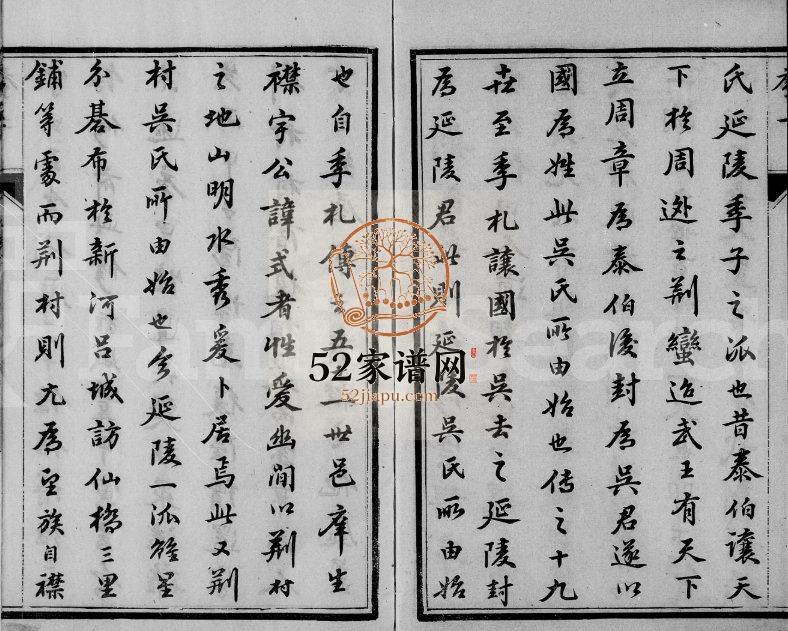 氏延陵季子之派也昔泰伯讓天
下於周逊之荆蠻迨武王有天下
立周章為泰伯後封為吳君遂以
國為姓此吳氏所由始也传之十九
世至季札讓國於吳去之延陵封
為延陵君此則延陵吳氏所由始
也自季札傳之五十一世邑庠生
襟宇公諱式者性爱幽閒以荆村
之地山明水秀爰卜居焉此又荆
村吳氏所由始也今延陵一派雖星
分碁布於新河吕城訪仙橋三里
鋪等處而荆村則尤為望族自襟
52家谱网
52jiapu.com
FamilySearch